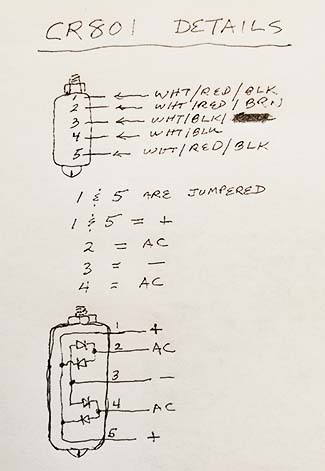 CR801 DETAILS
1 ← WHT/RED/BLK
2 ← WHT/RED/BRN
3 ← WHT/BLK/
4 ← WHT/BLU
5 ← WHT/RED/BLK
1 & 5 ARE JUMPERED
1 & 5 = +
2 = AC
3 = −
4 = AC
1 +
2 AC
3 −
4 AC
5 +